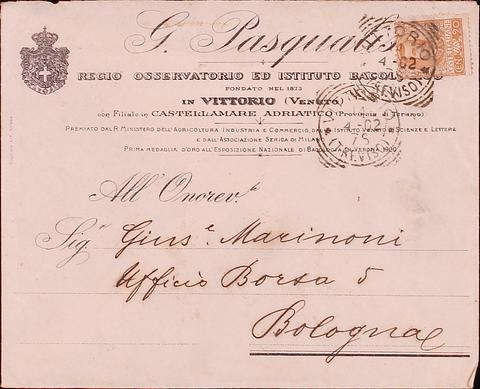 G. Pasqualis
REGIO OSSERVATORIO ED ISTITUTO BACOL
FONDATO NEL 1873
IN VITTORIO (VENETO)
con Filiale in CASTELLAMARE ADRIATICO (Provincia di Teramo)
PREMIATO DAL R. MINISTERO DELL'AGRICOLTURA INDUSTRIA E COMMERCIO, DAL R. ISTITUTO VENETO DI SCIENZE E LETTERE
E DALL'ASSOCIAZIONE SERICA DI MILANO
PRIMA MEDAGLIA D'ORO ALL'ESPOSIZIONE NAZIONALE DI BACOLOGIA DI VERONA 1900
VITTORIO
4-02
(TREVISO)
CENT. 20
4-02
(TREVISO)
All' Onorev.le
Sig. Gius.e Marinoni
Ufficio Borsa 5
Bologna